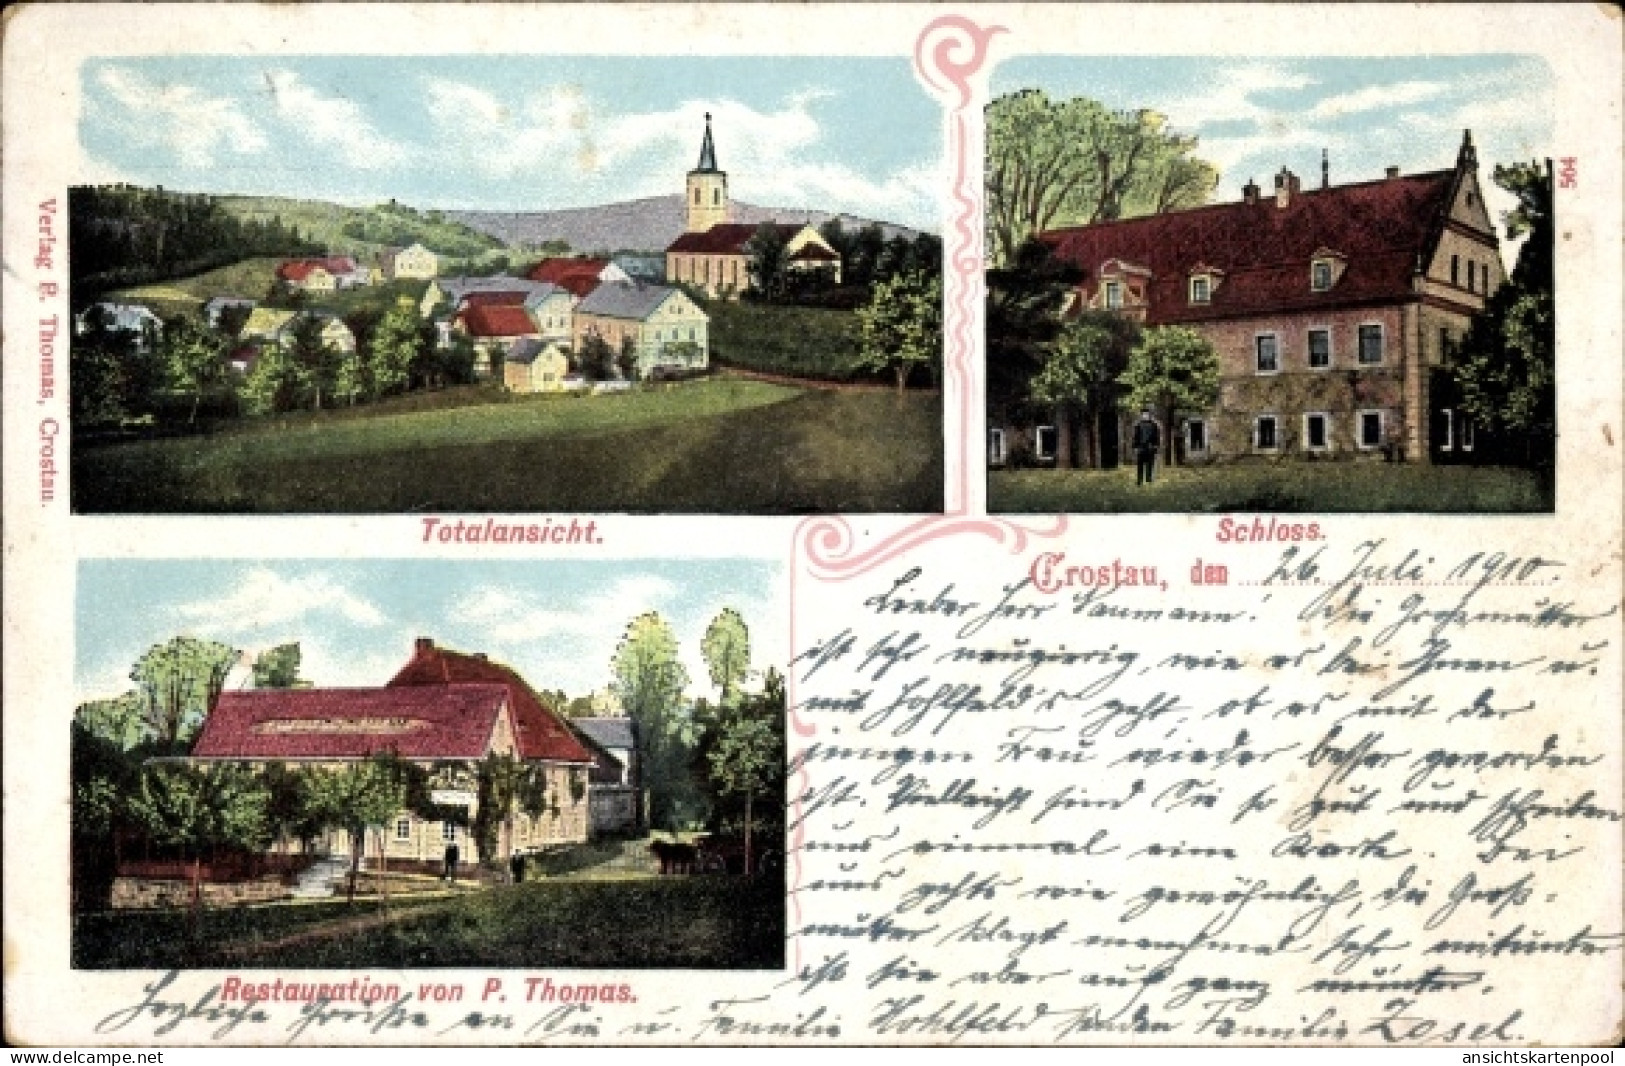 Verlag P. Thomas, Crostau.
564
Totalansicht.
Schloss.
Restauration von P. Thomas.
Crostau, den 26. Juli 1910.
Lieber Herr Naumann! Die Großmutter
ist sehr neugierig, wie es bei Ihnen u.
mit Hohlfeld's geht, ob es mit der
jungen Frau wieder besser geworden
ist. Vielleicht sind Sie so gut und schreiben
uns einmal eine Karte. Bei
uns gehts wie gewöhnlich, die Groß-
mutter klagt manchmal sehr mitunter
ist sie aber auch ganz munter.
Herzliche Grüße an Sie u. Familie Hohlfeld senden Familie Zosel.
www.delcampe.net
ansichtskartenpool